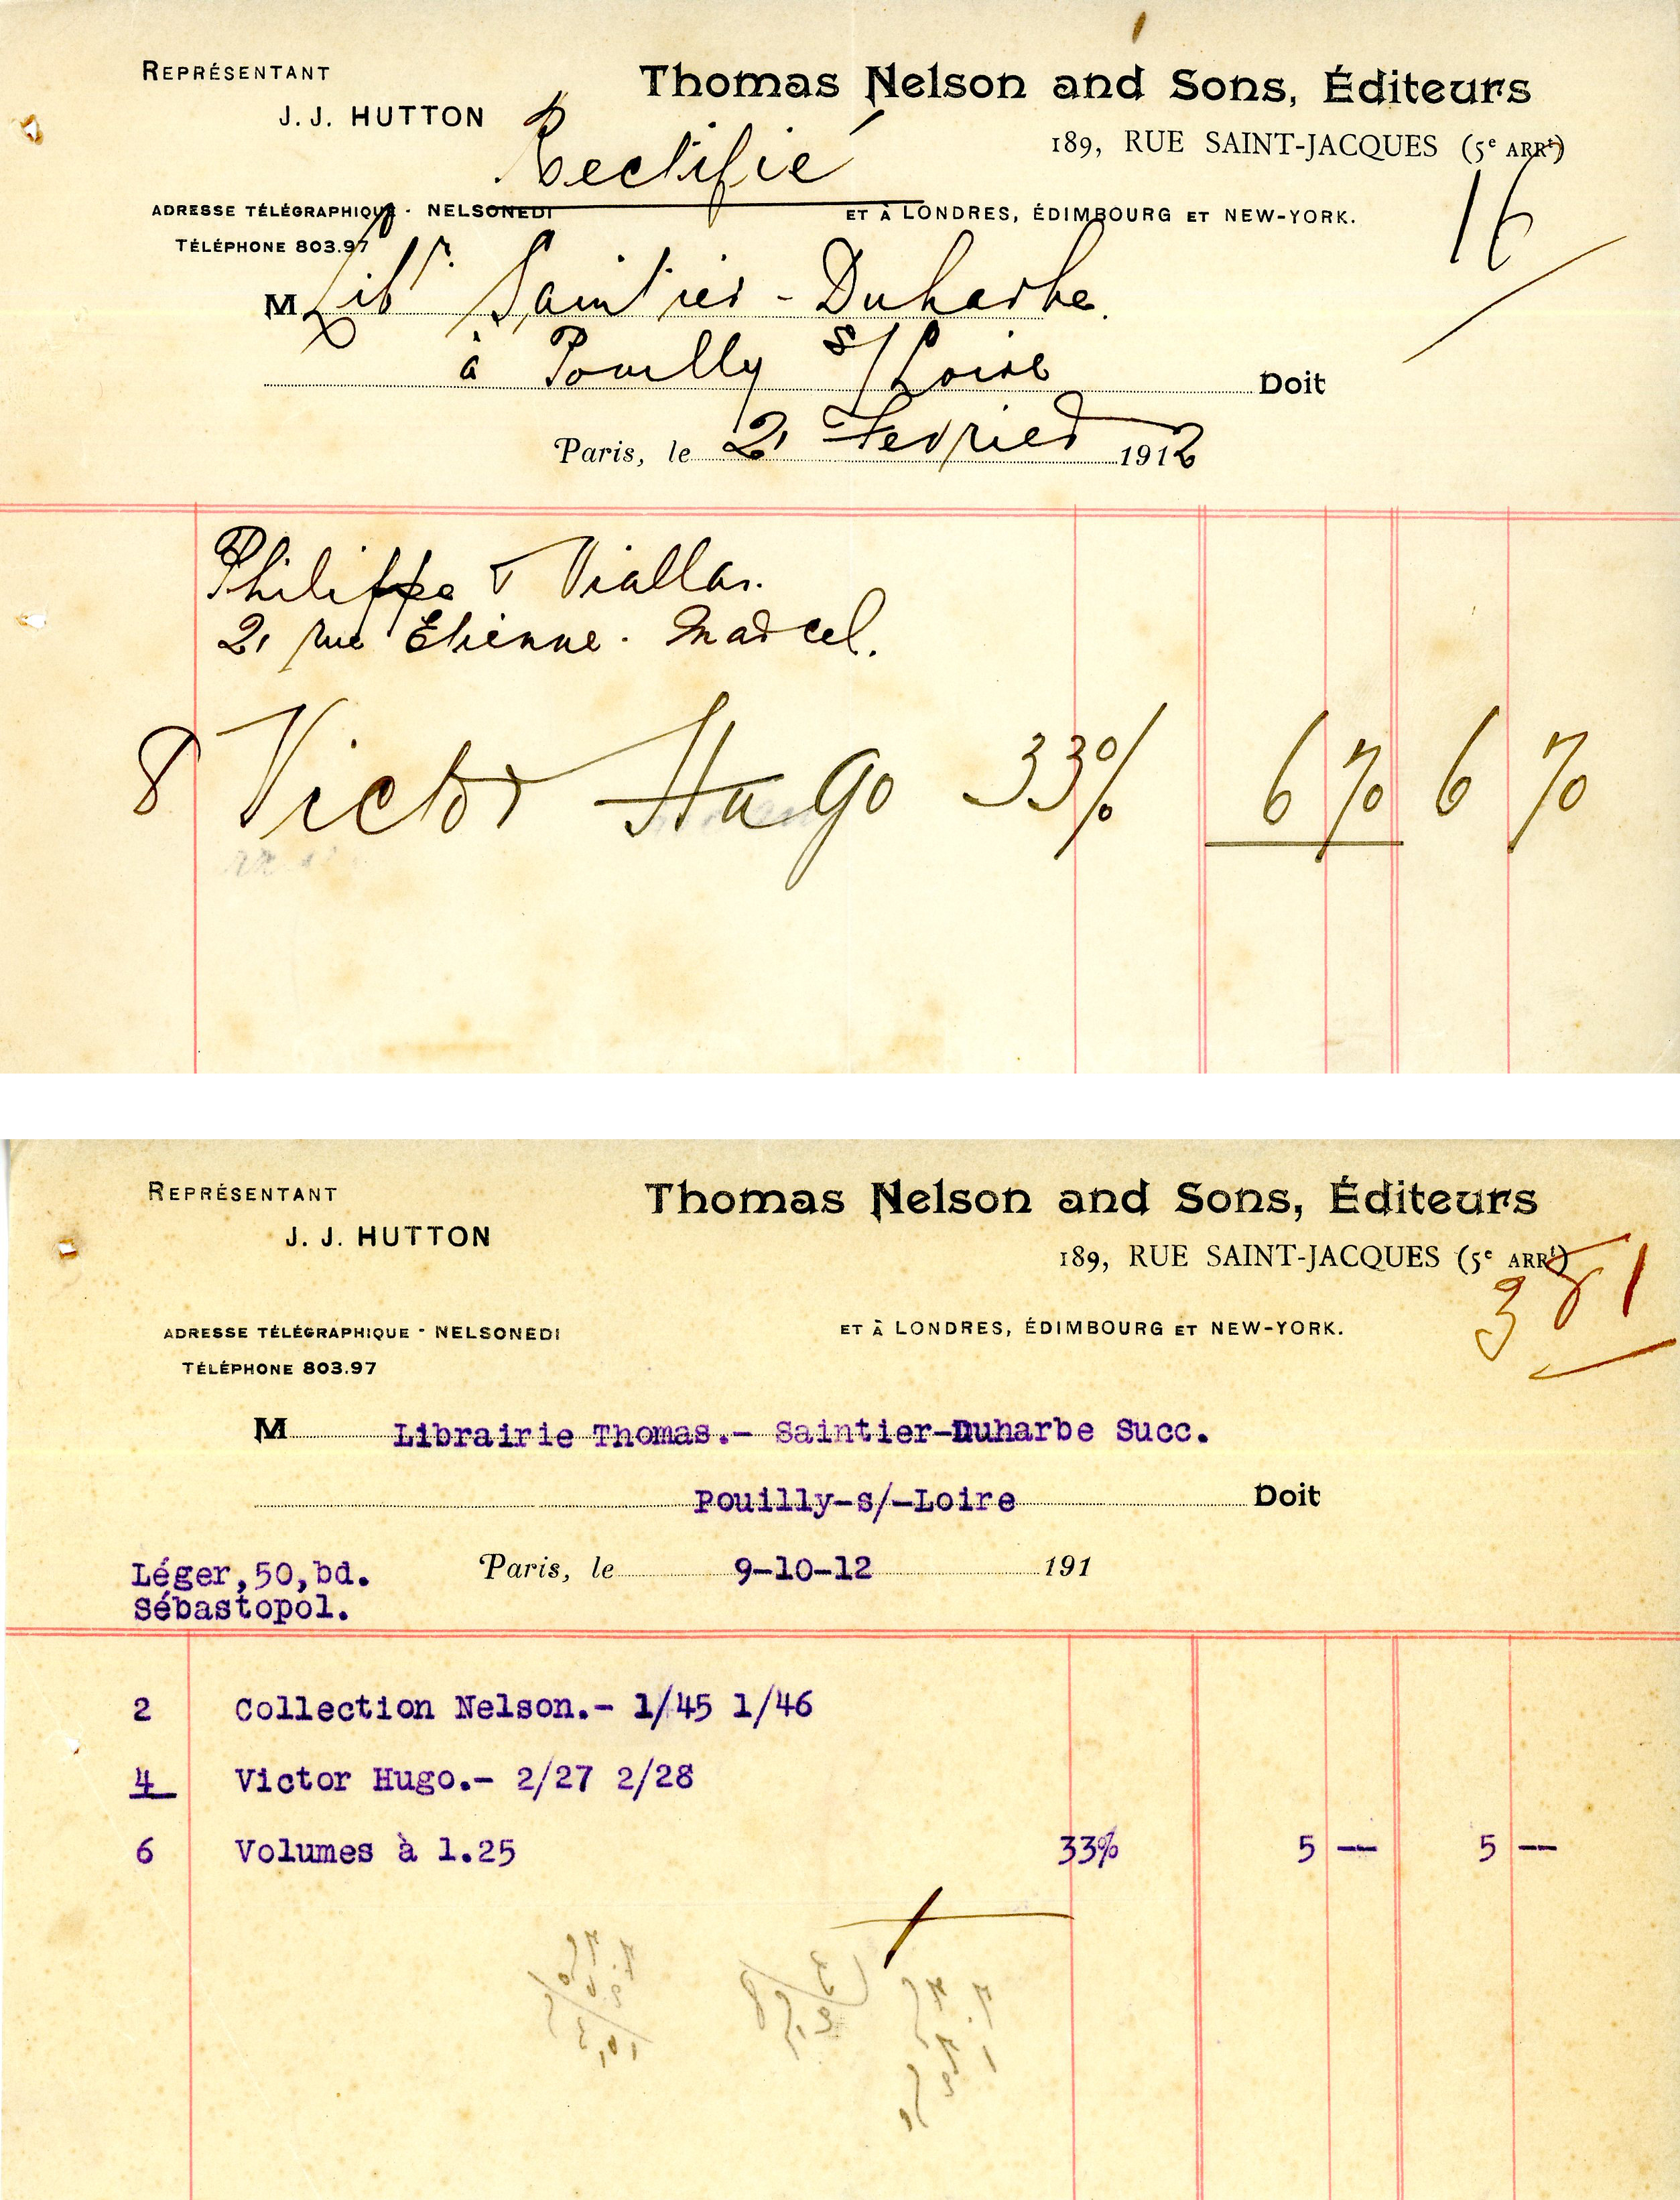 REPRÉSENTANT
J. J. HUTTON
Thomas Nelson and Sons, Éditeurs
189, RUE SAINT-JACQUES (5e ARRt)
Rectifié
16
ADRESSE TÉLÉGRAPHIQUE - NELSONEDI
ET À LONDRES, ÉDIMBOURG ET NEW-YORK.
TÉLÉPHONE 803.97
M Libr. Saintier-Duharbe.
à Pouilly s/Loire Doit
Paris, le 2 Fevrier 1912
Philippe & Viallar.
21 rue Etienne-Marcel.
8 Victor Hugo 33% 6 70 6 70
REPRÉSENTANT
J. J. HUTTON
Thomas Nelson and Sons, Éditeurs
189, RUE SAINT-JACQUES (5e ARRt)
381
ADRESSE TÉLÉGRAPHIQUE - NELSONEDI
ET À LONDRES, ÉDIMBOURG ET NEW-YORK.
TÉLÉPHONE 803.97
M Librairie Thomas.- Saintier-Duharbe Succ.
Pouilly-s/-Loire Doit
Léger,50,bd. Paris, le 9-10-12 191
Sébastopol.
2 Collection Nelson.- 1/45 1/46
4 Victor Hugo.- 2/27 2/28
6 Volumes à 1.25 33% 5 -- 5 --